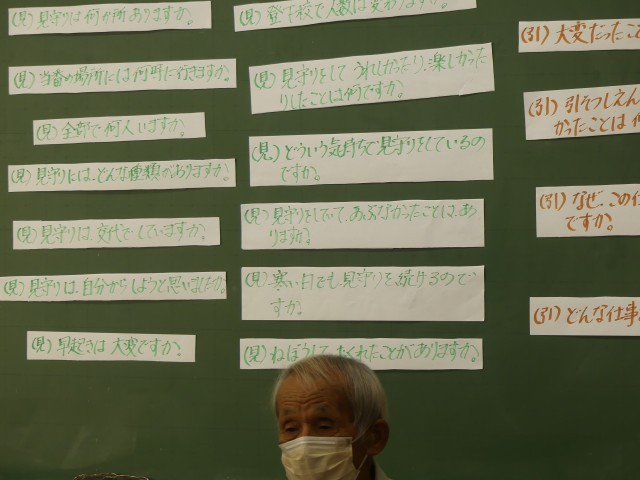 (見)見守りは何か所ありますか。
(見)当番の場所には何時に行きますか。
(見)全部で何人いますか。
(見)見守りには、どんな種類がありますか。
(見)見守りは、交代でしていますか。
(見)見守りは、自分からしようと思いましたか。
(見)早起きは大変ですか。
(見)登下校で人数は変わりますか。
(見)見守りをしてうれしかったり、楽しかっ
たりしたことは何ですか。
(見)どういう気持ちで見守りをしているの
ですか。
(見)見守りをしていて、あぶなかったことは、あ
りますか。
(見)寒い日でも、見守りを続けるので
すか。
(見)ねぼうして、おくれたことがありますか。
(引)大変だったこと
(引)引きつしえん
かったことは何
(引)なぜ、この仕
ですか。
(引)どんな仕事